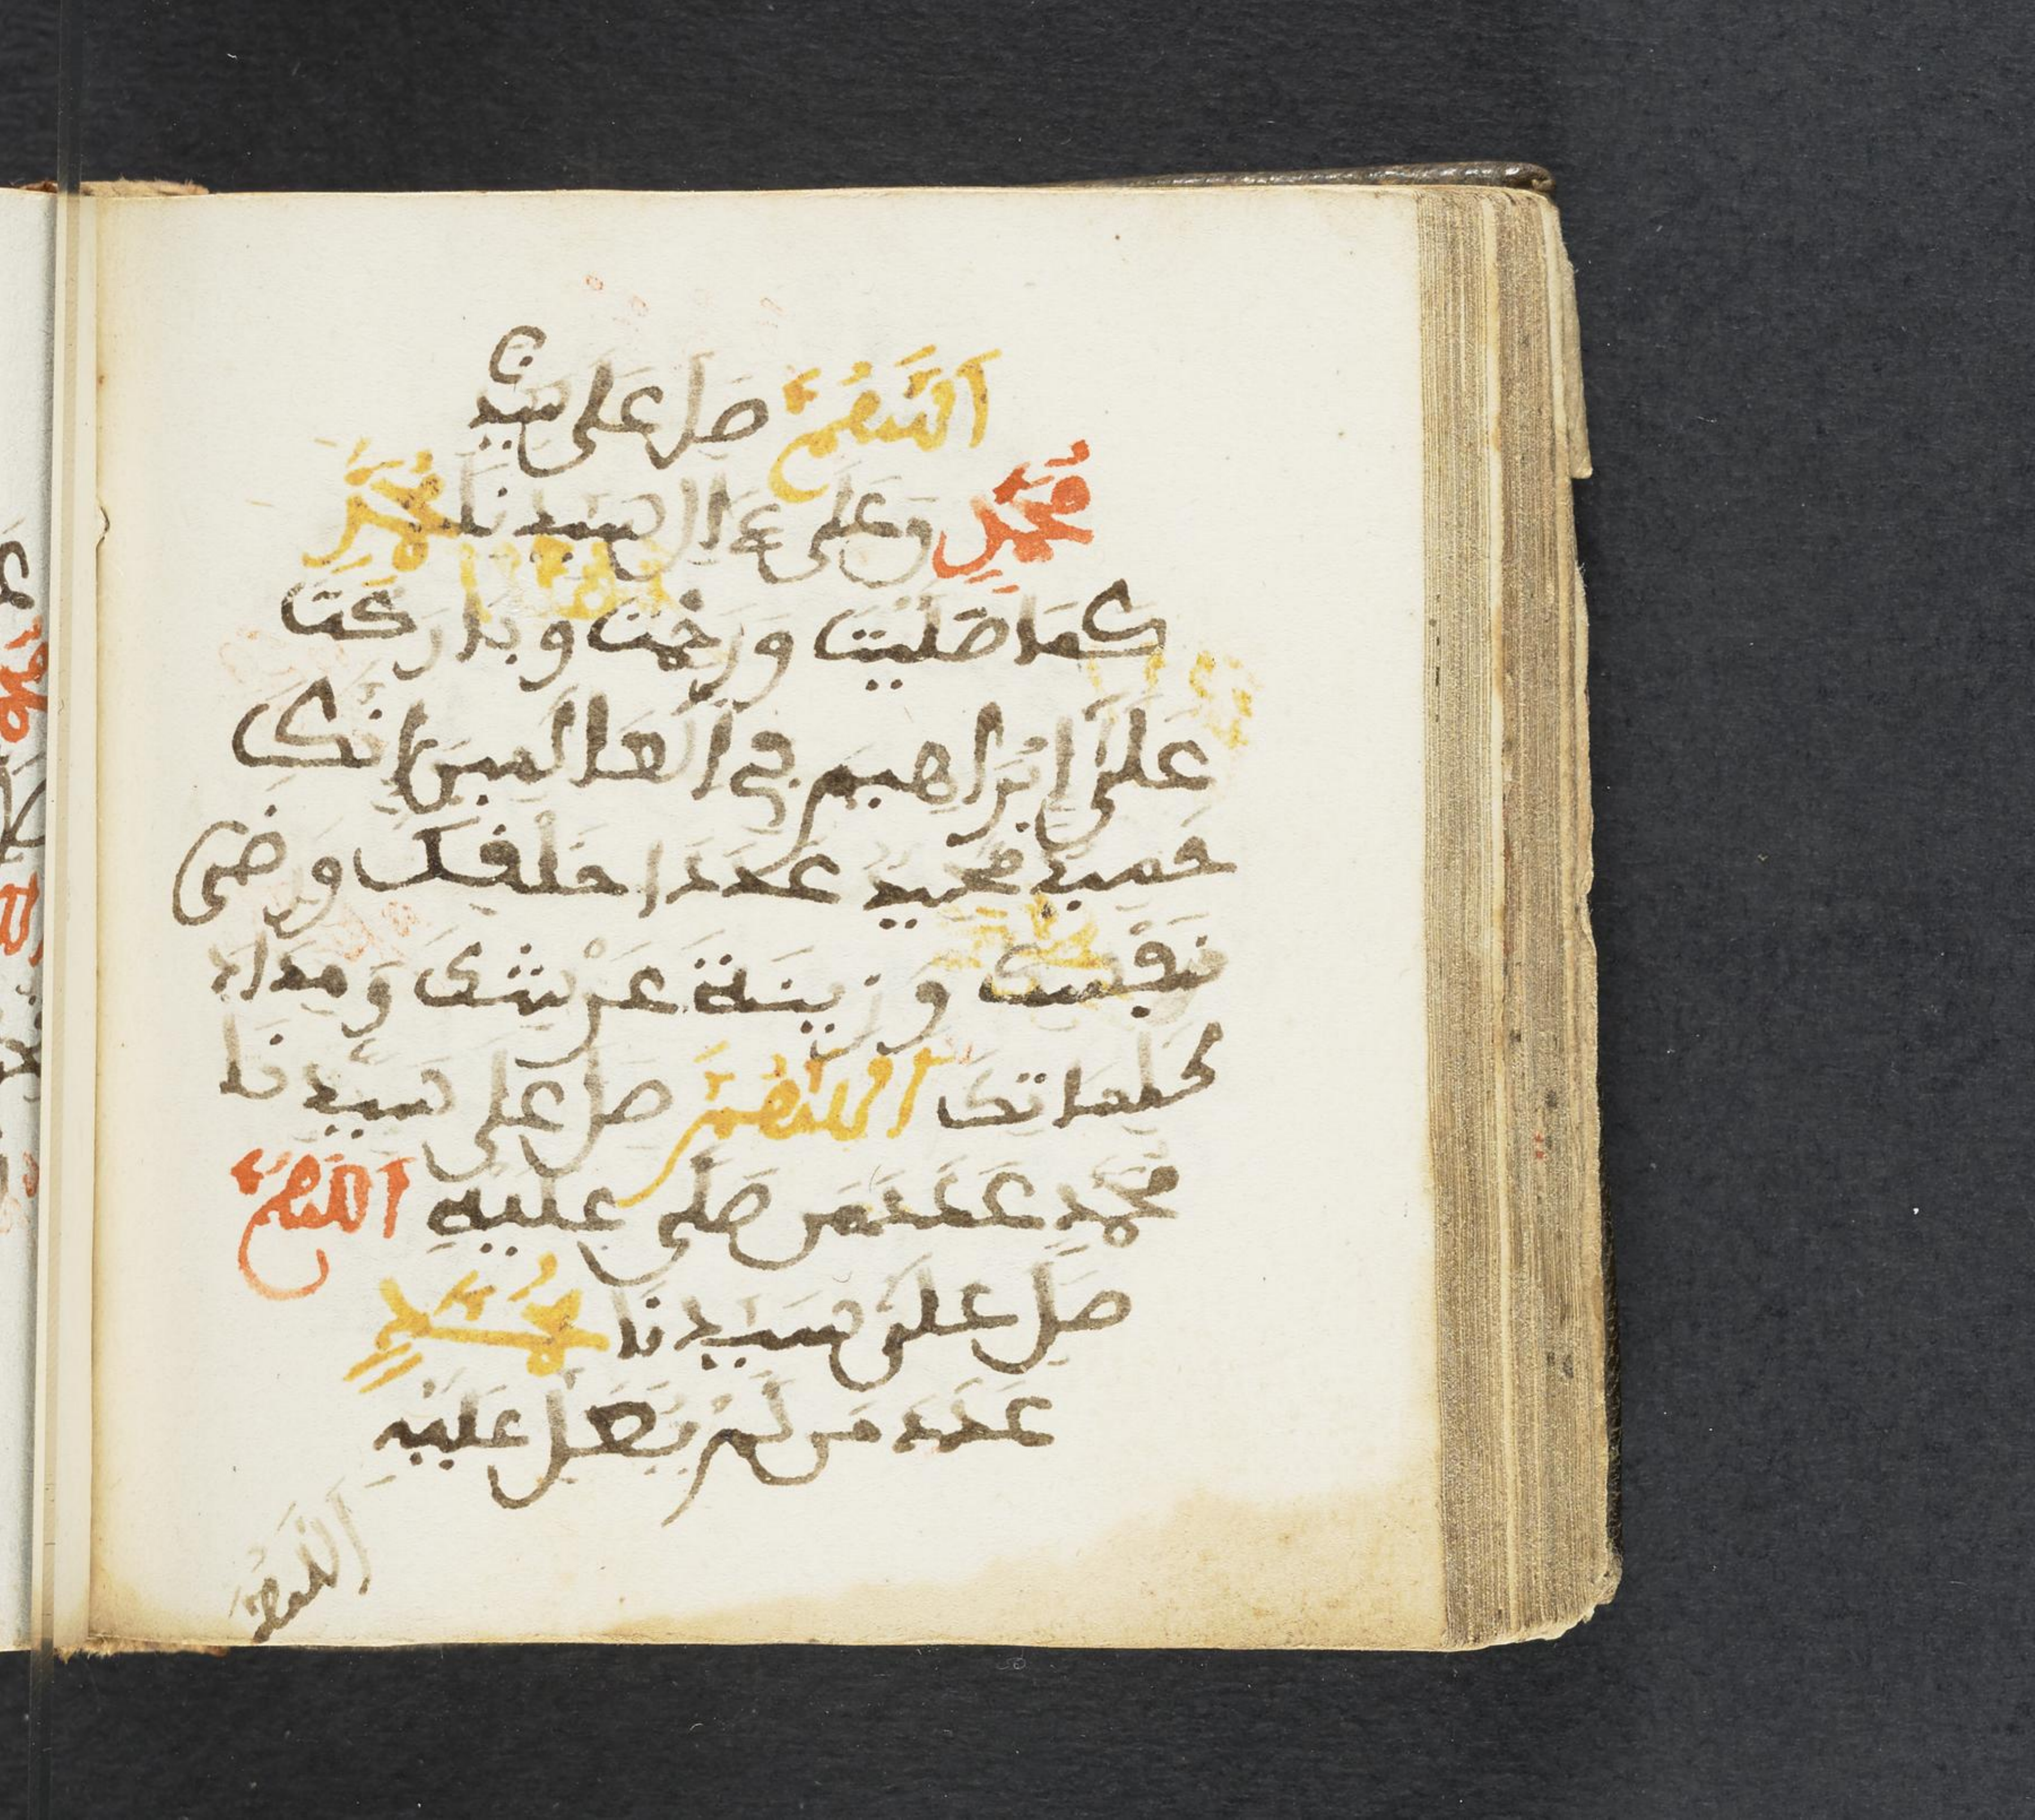 اَللَّهُمَّ صَلِ عَلَى سَيِّدِنَا
مُحَمَّدٍ وَعَلَى ءَالِ سَيِّدِنَا مُحَمَّدٍ
كَمَا صَلَيْتَ وَرَحْمتَ وبَارَكتَ
عَلَى اِبْرَاهِيمَ فِي العَالَمِينَ إنَّكَ
حَمِيدٌ مَجِيدٌ عَدَدَا خَلْفِكَ وَرِضَى
نَفْسِكَ وَزِينَةَ عَرْشِكَ وَمِدَادَ
كَلِمَاتِكَ اَللَّهُمَّ صَلِ عَلَى سَيِّدِنَا
مُحَمَّدٍ عَدَدَ مَن صَلَى عَلَيْهِ اَللَّهُمَّ
صَلِ عَلَى سَيِّدِنَا مُحَمَّدٍ
عَدَدَ مَن لَمْ يُصَلِ عَلَيْهِ
اَللَّهُمَّ